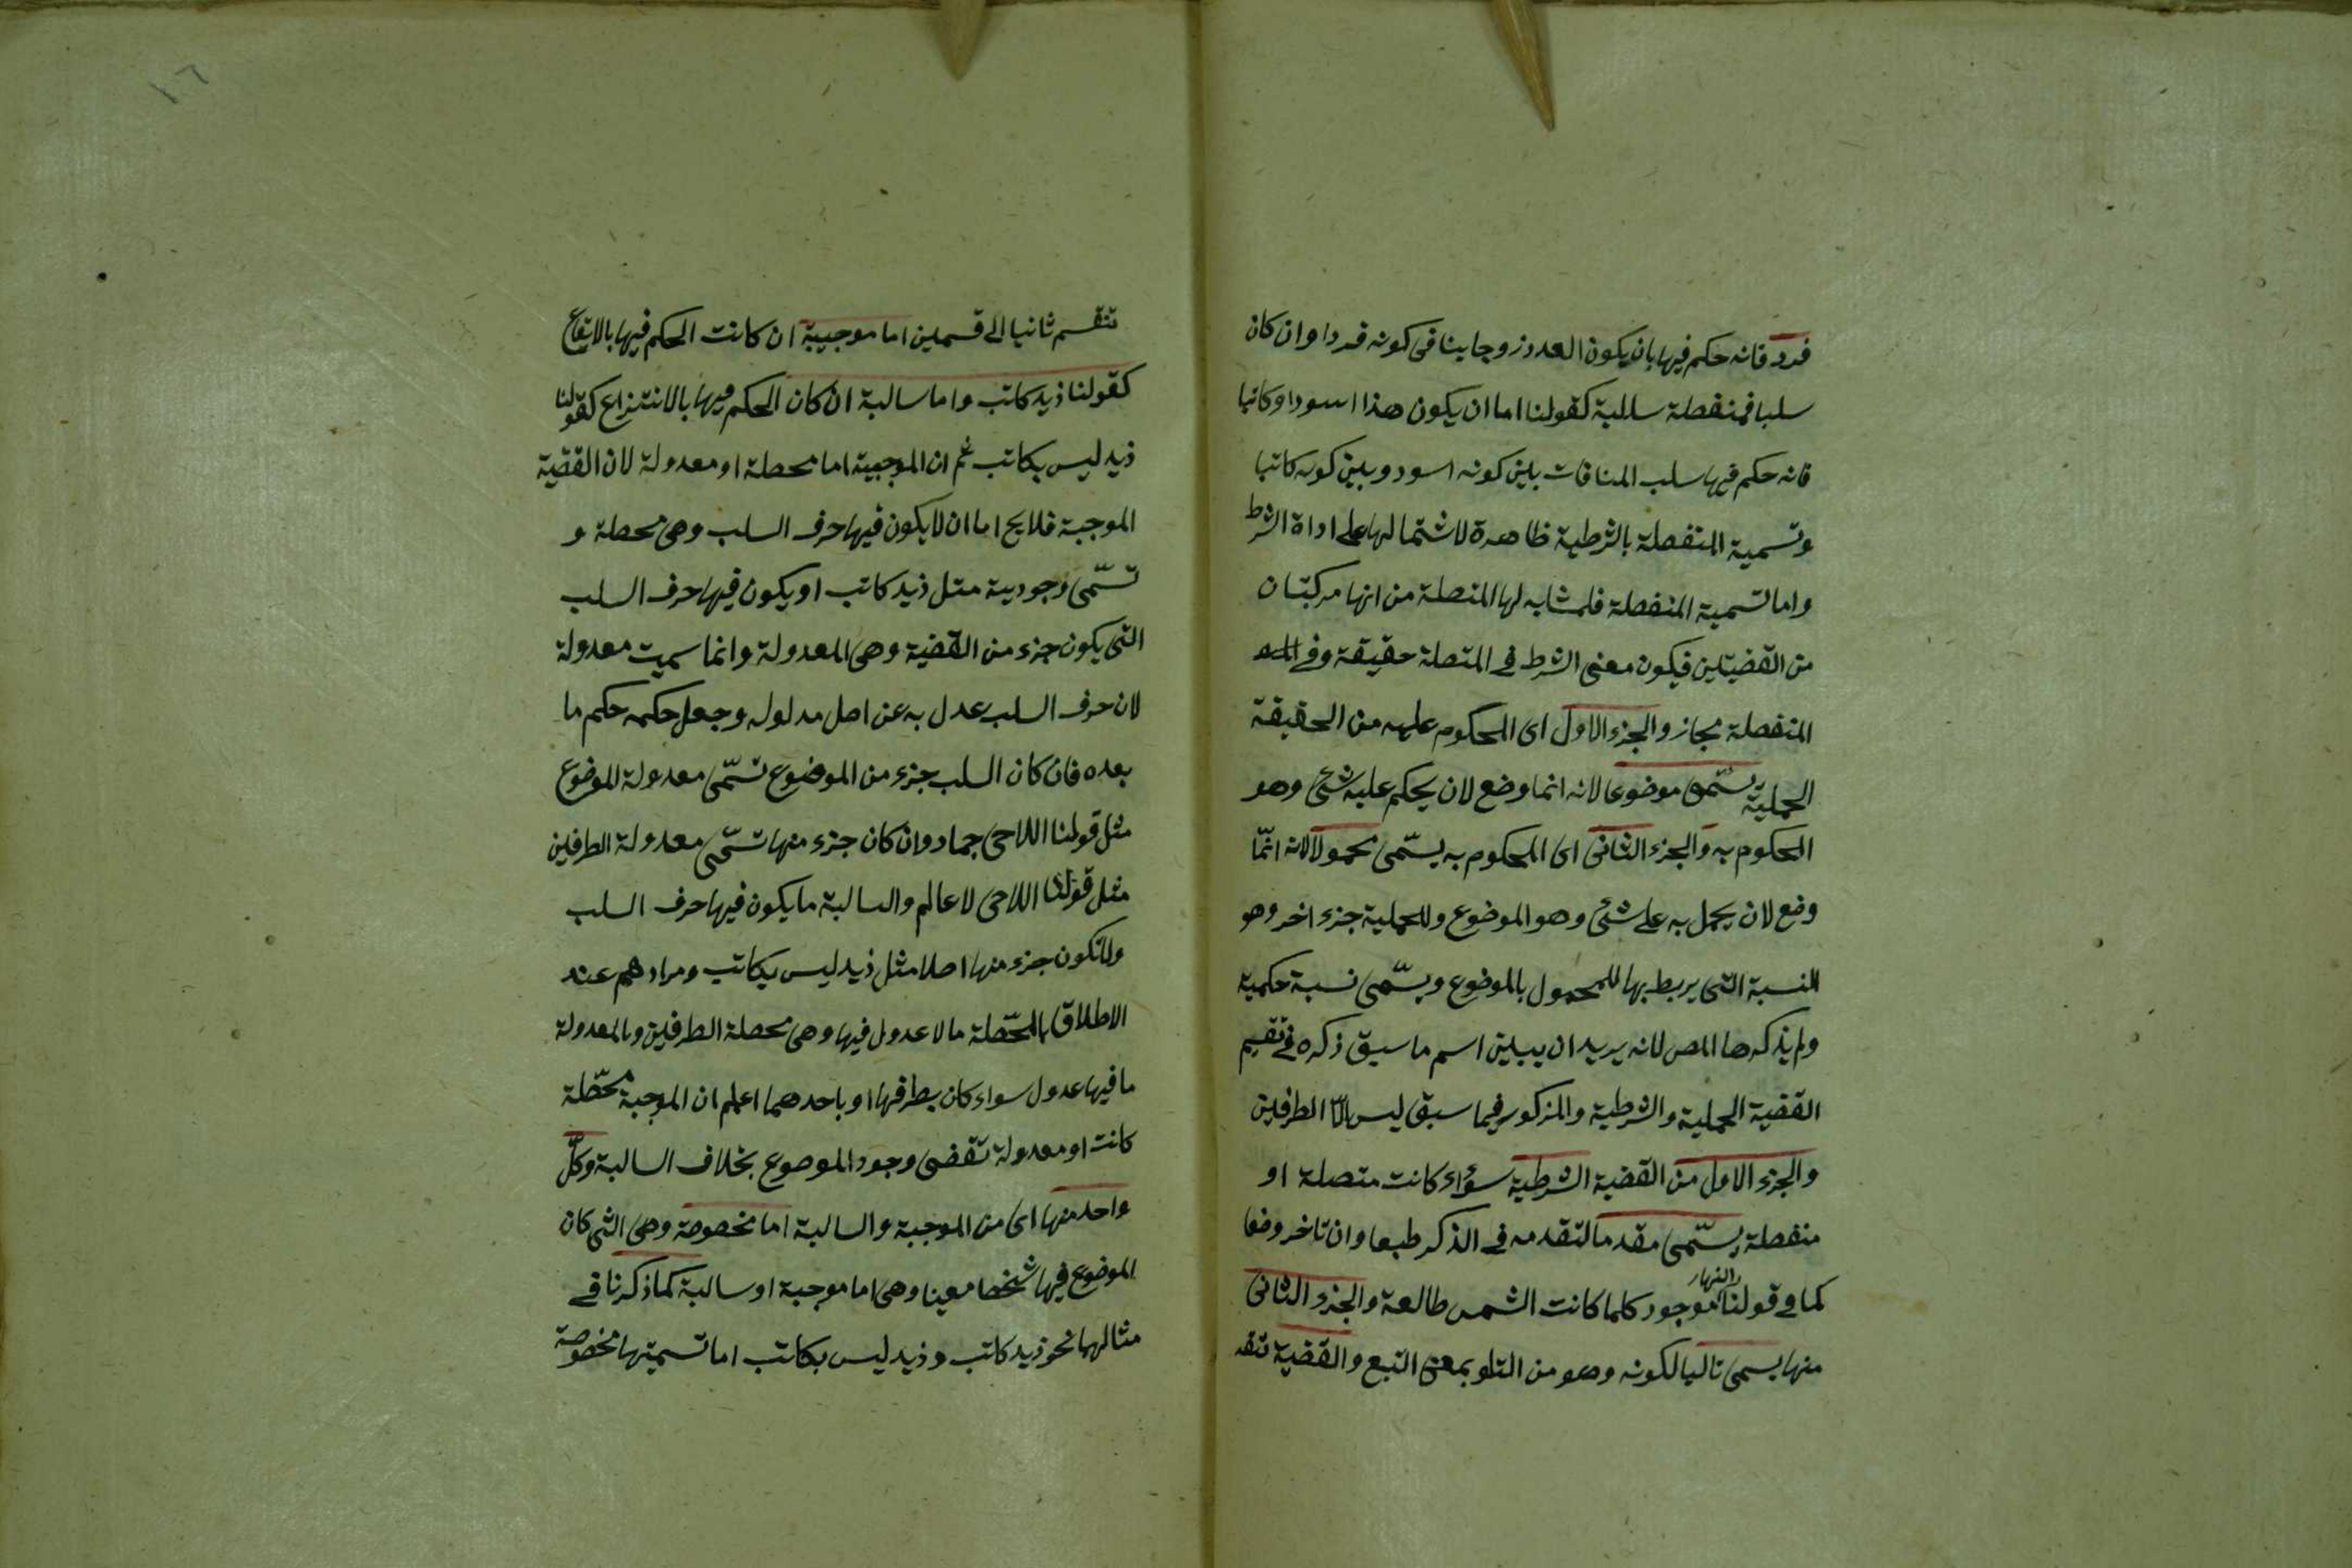 فرد فانه حكم فيها بان يكون العدد زوجا ينافى كونه فردا وان كان
سلبا فمنفصلة سالبة كقولنا اما ان يكون هذا اسود او كاتبا
فانه حكم فيها سلب المنافات بين كونه اسود وبين كونه كاتبا
وتسمية المتفصلة بالشرطية ظاهرة لاشتمالها على اداة الشرط
واما تسمية المنفصلة فلمشابه لها المتصلة من انها مركبتان
من القضيتين فيكون معنى الشرط فى المتصلة حقيقة وفى
المنفصلة مجاز والجزء الاول اى المحكوم عليه من الحقيقة
الحملية يسمى موضوعا لانه انما وضع لان يحكم عليه شئ وهو
المحكوم به والجزء الثانى اى المحكوم به يسمّى محمولا لانه انمّا
وضع لان يحمل به على شئ وهو الموضوع وللحملية جزء اخر وهو
النسبة التى يربط بها للمحمول بالموضوع ويسمّى نسبة حكمية
ولم يذكرها المص لانه يريد ان يبين اسم ما سبق ذكره فى تقسيم
القضية الحملية والشرطية والمذكور فيما سبق ليس الّا الطرفين
والجزء الاول من القضية الشرطية سواء كانت متصلة او
منفصلة يسمّى مقدما لتقدمه فى الذكر طبعا وان تاخر وضعا
كما فى قولنا والنهار موجود كلما كانت الشمس طالعة والجزء الثانى
منها يسمى تاليا لكونه وهو من التلو بمعنى التبع والقضية تنقـ
١٦
تنقسم ثانيا الى قسمين اما موجبية ان كانت الحكم فيها بالايقاع
كقولنا ذيد كاتب واما سالبة ان كان الحكم فيها بالانتزاع كقولنا
ذيد ليس بكاتب ثم ان الموجبة اما محصلة او معدولة لان القضية
الموجبة فلايخ اما ان لا يكون فيها حرف السلب وهى محصلة و
تسمّى وجودية مثل ذيد كاتب او يكون فيها حرف السلب
التى يكون جزء من القضية وهى المعدولة وانما سميت معدولة
لان حرف السلب عدل به عن اصل مدلوله وجعل حكمه حكم ما
بعده فان كان السلب جزء من الموضوع تسمّى معدولة الموضوع
مثل قولنا اللاحى جماد وان كان جزء منها تسمّى معدولة الطرفين
مثل قولنا اللاحى لا عالم والسالبة ما يكون فيها حرف السلب
ولاتكون جزء منها اصلا مثل ذيد ليس بكاتب ومرادهم عند
الاطلاق بالمحصّلة ما لا عدول فيها وهى محصلة الطرفين وبالمعدولة
ما فيها عدول سواء كان بطرفها او باحدهما اعلم ان الموجبة محصّلة
كانت او معدولة تقضى وجود الموضوع بخلاف السالبة وكلّ
واحد منها اى من الموجبة والسالبة اما مخصوصة وهى التى كان
الموضوع فيها شخصا معينا وهى اما موجبة او سالبة كما ذكرنا فى
مثالهما نحو ذيد كاتب وذيد ليس بكاتب اما تسميتها مخصوصة